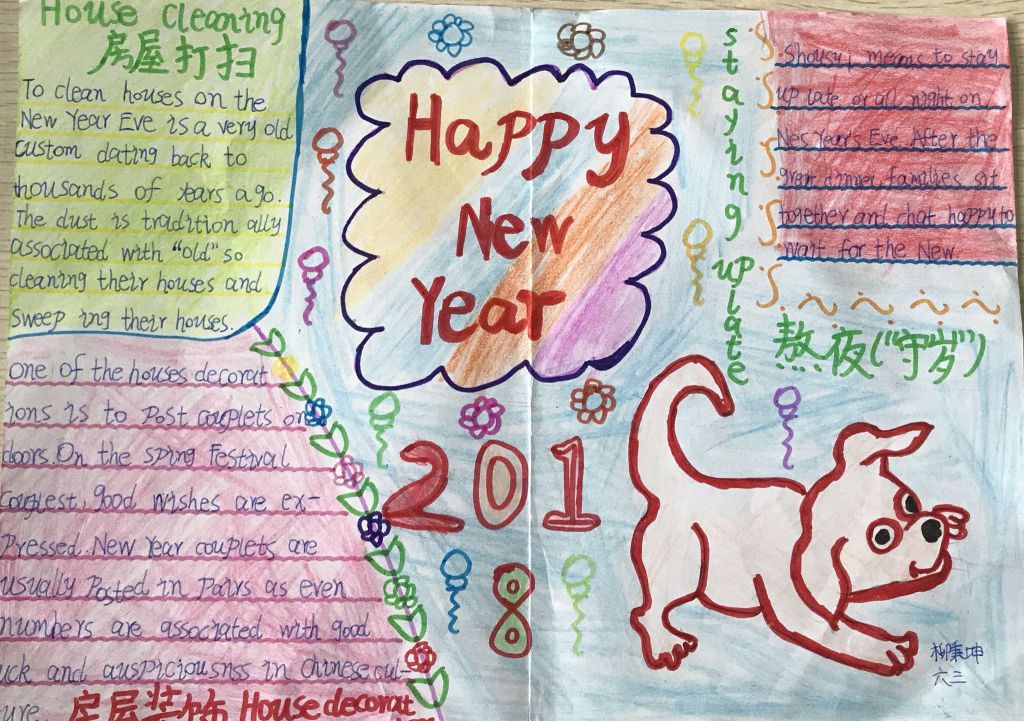 House Cleaning
房屋打扫
To clean houses on the
New Year Eve is a very old
custom dating back to
thousands of years ago.
The dust is tradition ally
associated with "old" so
cleaning their houses and
sweep ing their houses.
one of the houses decorat
ions is to post couplets on
doors. On the sping Festival
good wishes are ex-
pressed. New Year couplets are
usually Posted in pairs as even
numbers are associated with good
uck and auspiciousnss in Chinese cul-
ure.
房屋装饰 House decorat
Happy
New
Year
2018
staying up late
Shousui means to stay
up late or all night on
Nes Year's Eve. After the
grant dinner, families sit
together and chat happy to
wait for the New
熬夜("守岁")
柳秉坤
六三